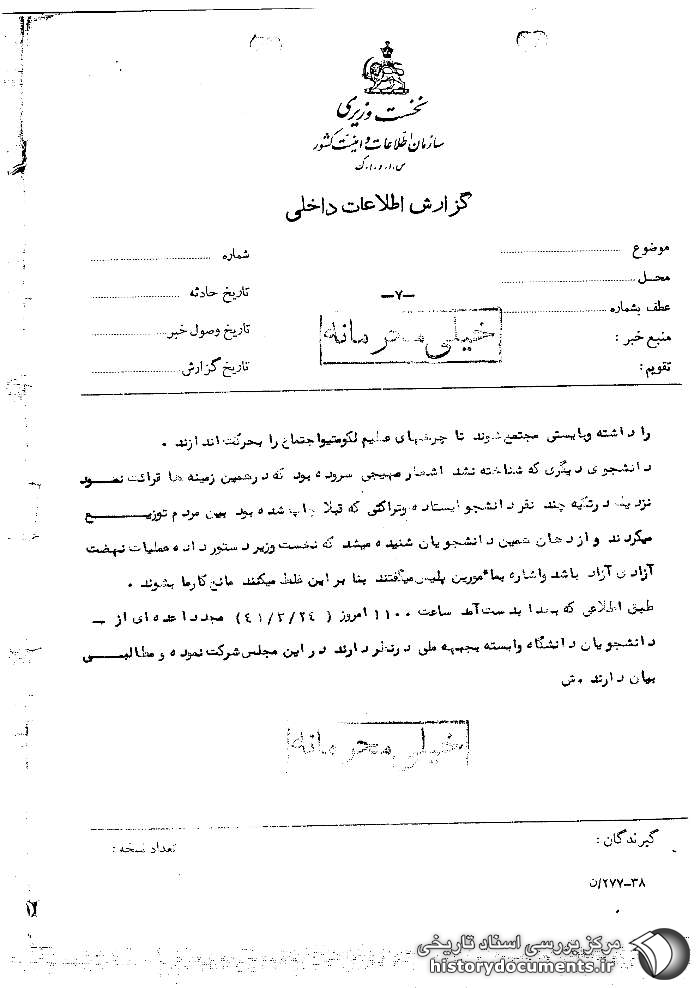 نخست وزیری
سازمان اطلاعات و امنیت کشور
س.ا.و.ا.ک
گزارش اطلاعات داخلی
موضوع
شماره
محل
تاریخ حادثه
-۷-
عطف بشماره
تاریخ وصول خبر
منبع خبر :
خیلی محرمانه
تقویم :
تاریخ گزارش
را داشته وبایستی مجتمع شوند تا چرخهای عظیم لکوموتیو اجتماع را بحرکت اندازند .
دانشجوی دیگری که شناخته نشد اشعار مهیجی سروده بود که درهمین زمینه ها قرائت نمود
نزدیک درتکیه چند نفر دانشجو ایستاده وتراکتی که قبلا چاپ شده بود بین مردم توزیع
میکردند و از دهان همین دانشجویان شنیده میشد که نخست وزیر دستور داده عملیات نهضت
آزادی آزاد باشد واشاره بمأمورین پلیس میگفتند بنا بر این غلط میکنند مانع کارما بشوند .
طبق اطلاعی که بعدا بدست آمد ساعت ۱۱۰۰ امروز ( ۴۱/۳/۲۴) مجددا عده ای از -
دانشجویان دانشگاه وابسته بجبهه ملی درنظر دارند در این مجلس شرکت نموده و مطالبی
بیان دارند .ش
خیلی محرمانه
گیرندگان :
تعداد نسخه :
۳۸-۲۷۷/ن
مرکز بررسی اسناد تاریخی
historydocuments.ir